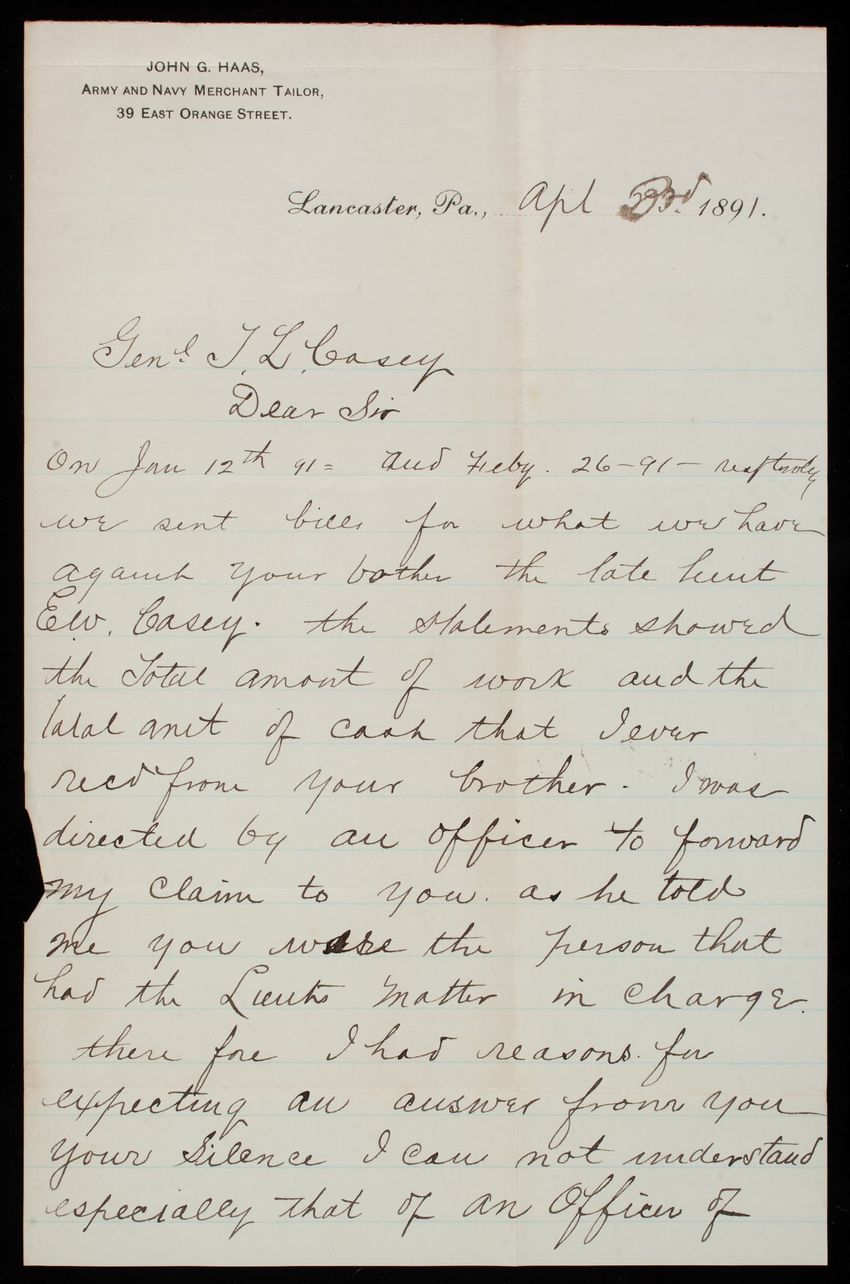 JOHN G. HAAS,
ARMY AND NAVY MERCHANT TAILOR,
39 EAST ORANGE STREET.
Lancaster, Pa., Apl 23rd 1891.
Genl T. L. Casey
Dear Sir
On Jan 12th 91 = and Feby. 26 - 91 -
we sent bills for what we have
against your bother the late Leut
E.W. Casey. the statements showed
the Total amount of work and the
total amt of cash that I ever
recd from your brother. I was
directed by an officer to forward
my claim to you. as he told
me you were the person that
had the Lieuts matter in charge.
there fore I had reasons for
expecting an answer from you
your silence I can not understand
especially that of an Officer of